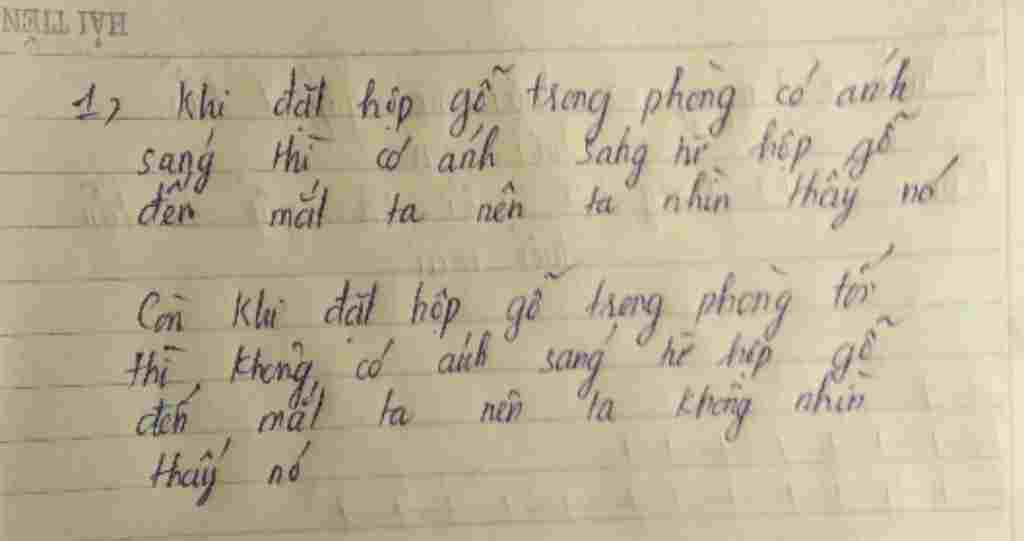 HẢI TIẾN
1, Khi đặt hộp gỗ trong phòng có ánh
sáng thì có ánh sáng từ hộp gỗ
đến mắt ta nên ta nhìn thấy nó
Còn khi đặt hộp gỗ trong phòng tối
thì không có ánh sáng từ hộp gỗ
đến mắt ta nên ta không nhìn
thấy nó